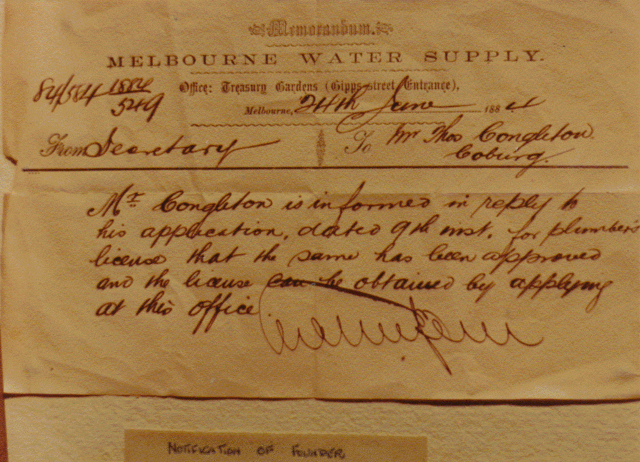 Memorandum.
MELBOURNE WATER SUPPLY.
Office: Treasury Gardens (Gipps-street Entrance),
84/584 1884/549
Melbourne, 24th June 1884
From Secretary To Mr Thos Congleton
Coburg.
Mr. Congleton is informed in reply to
his application, dated 9th inst. for plumbers
license that the same has been approved
and the license can be obtained by applying
at this office
NOTIFICATION OF FOUNDER